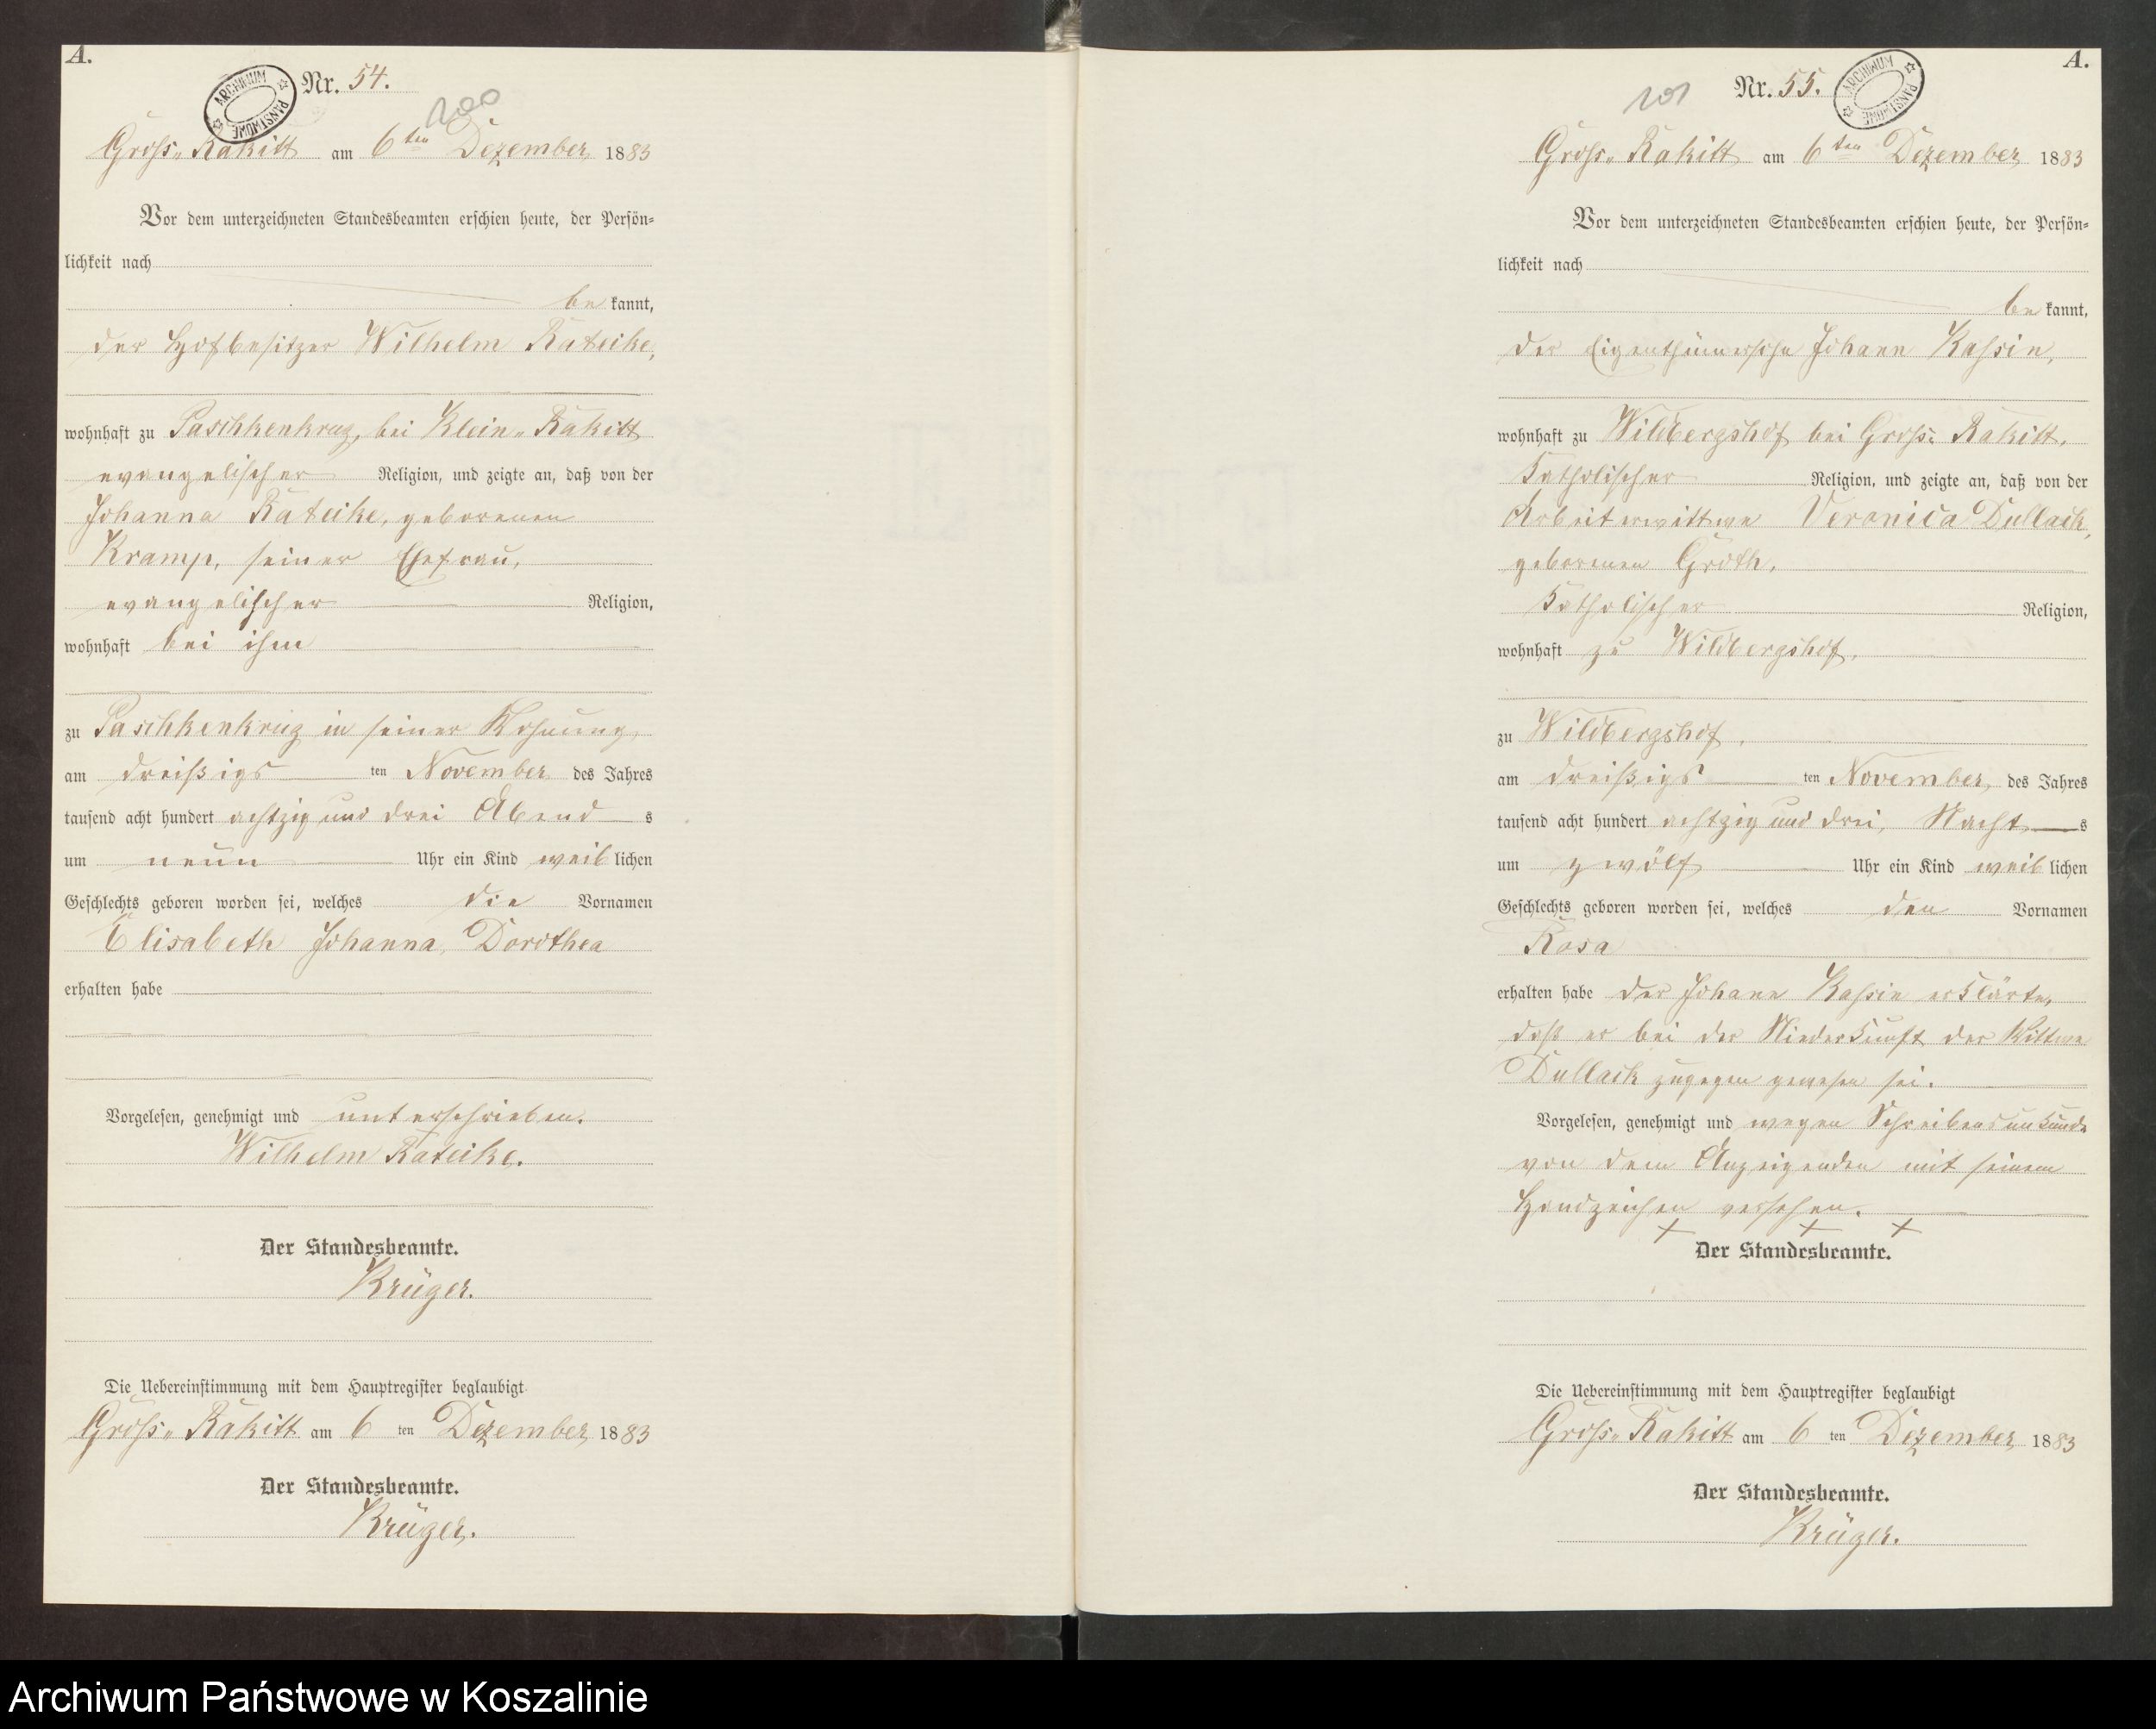 A.
ARCHIWUM PAŃSTWOWE
Nr. 54.
200
Gross-Rakitt am 6ten Dezember 1883
Vor dem unterzeichneten Standesbeamten erschien heute, der Persön-
lichkeit nach
be kannt,
der Hofbesitzer Wilhelm Rateike,
wohnhaft zu Paschkenkrug, bei Klein-Rakitt
evangelischer Religion, und zeigte an, daß von der
Johanna Rateike, geborenen
Kramp, seiner Ehefrau,
evangelischer Religion,
wohnhaft bei ihm
zu Paschkenkrug in seiner Wohnung,
am dreißigs ten November des Jahres
tausend acht hundert achtzig und drei Abend s
um neun Uhr ein Kind weib lichen
Geschlechts geboren worden sei, welches die Vornamen
Elisabeth Johanna, Dorothea
erhalten habe
Vorgelesen, genehmigt und unterschrieben.
Wilhelm Rateike.
Der Standesbeamte.
Krüger.
Die Uebereinstimmung mit dem Hauptregister beglaubigt
Gross-Rakitt am 6 ten Dezember 1883
Der Standesbeamte.
Krüger.
A.
ARCHIWUM PAŃSTWOWE
Nr. 55.
201
Gross-Rakitt am 6ten Dezember 1883
Vor dem unterzeichneten Standesbeamten erschien heute, der Persön-
lichkeit nach
be kannt,
der Eigenthümersohn Johann Kassin,
wohnhaft zu Wildbergshof bei Gross-Rakitt,
katholischer Religion, und zeigte an, daß von der
Arbeiterwittwe Veronica Dullack,
geborenen Groth,
katholischer Religion,
wohnhaft zu Wildbergshof,
zu Wildbergshof,
am dreißigs ten November, des Jahres
tausend acht hundert achtzig und drei, Nacht s
um zwölf Uhr ein Kind weib lichen
Geschlechts geboren worden sei, welches den Vornamen
Rosa
erhalten habe der Johann Kassin erklärte,
daß er bei der Niederkunft der Wittwe
Dullack zugegen gewesen sei.
Vorgelesen, genehmigt und wegen Schreibensunkunde
von dem Anzeigenden mit seinem
Handzeichen versehen.
+ + +
Der Standesbeamte.
Die Uebereinstimmung mit dem Hauptregister beglaubigt
Gross-Rakitt am 6 ten Dezember 1883
Der Standesbeamte.
Krüger.
Archiwum Państwowe w Koszalinie